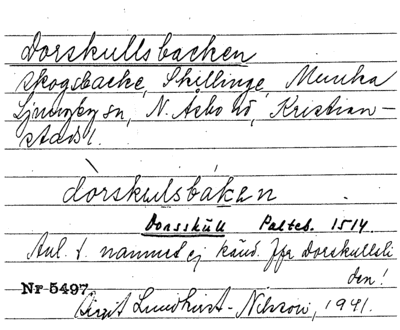 Dorskullsbacken
skogsbacke, Skillinge, Munka
Ljungby sn, N. Åsbo hd, Kristian-
stads l.
dòrskulsbáken
Dorsskull Palteb. 1514.
Anl. t. namnet ej känd. Jfr Dorskullsli
den!
Nr 5497.
Birgit Lundkvist-Nilsson, 1941.